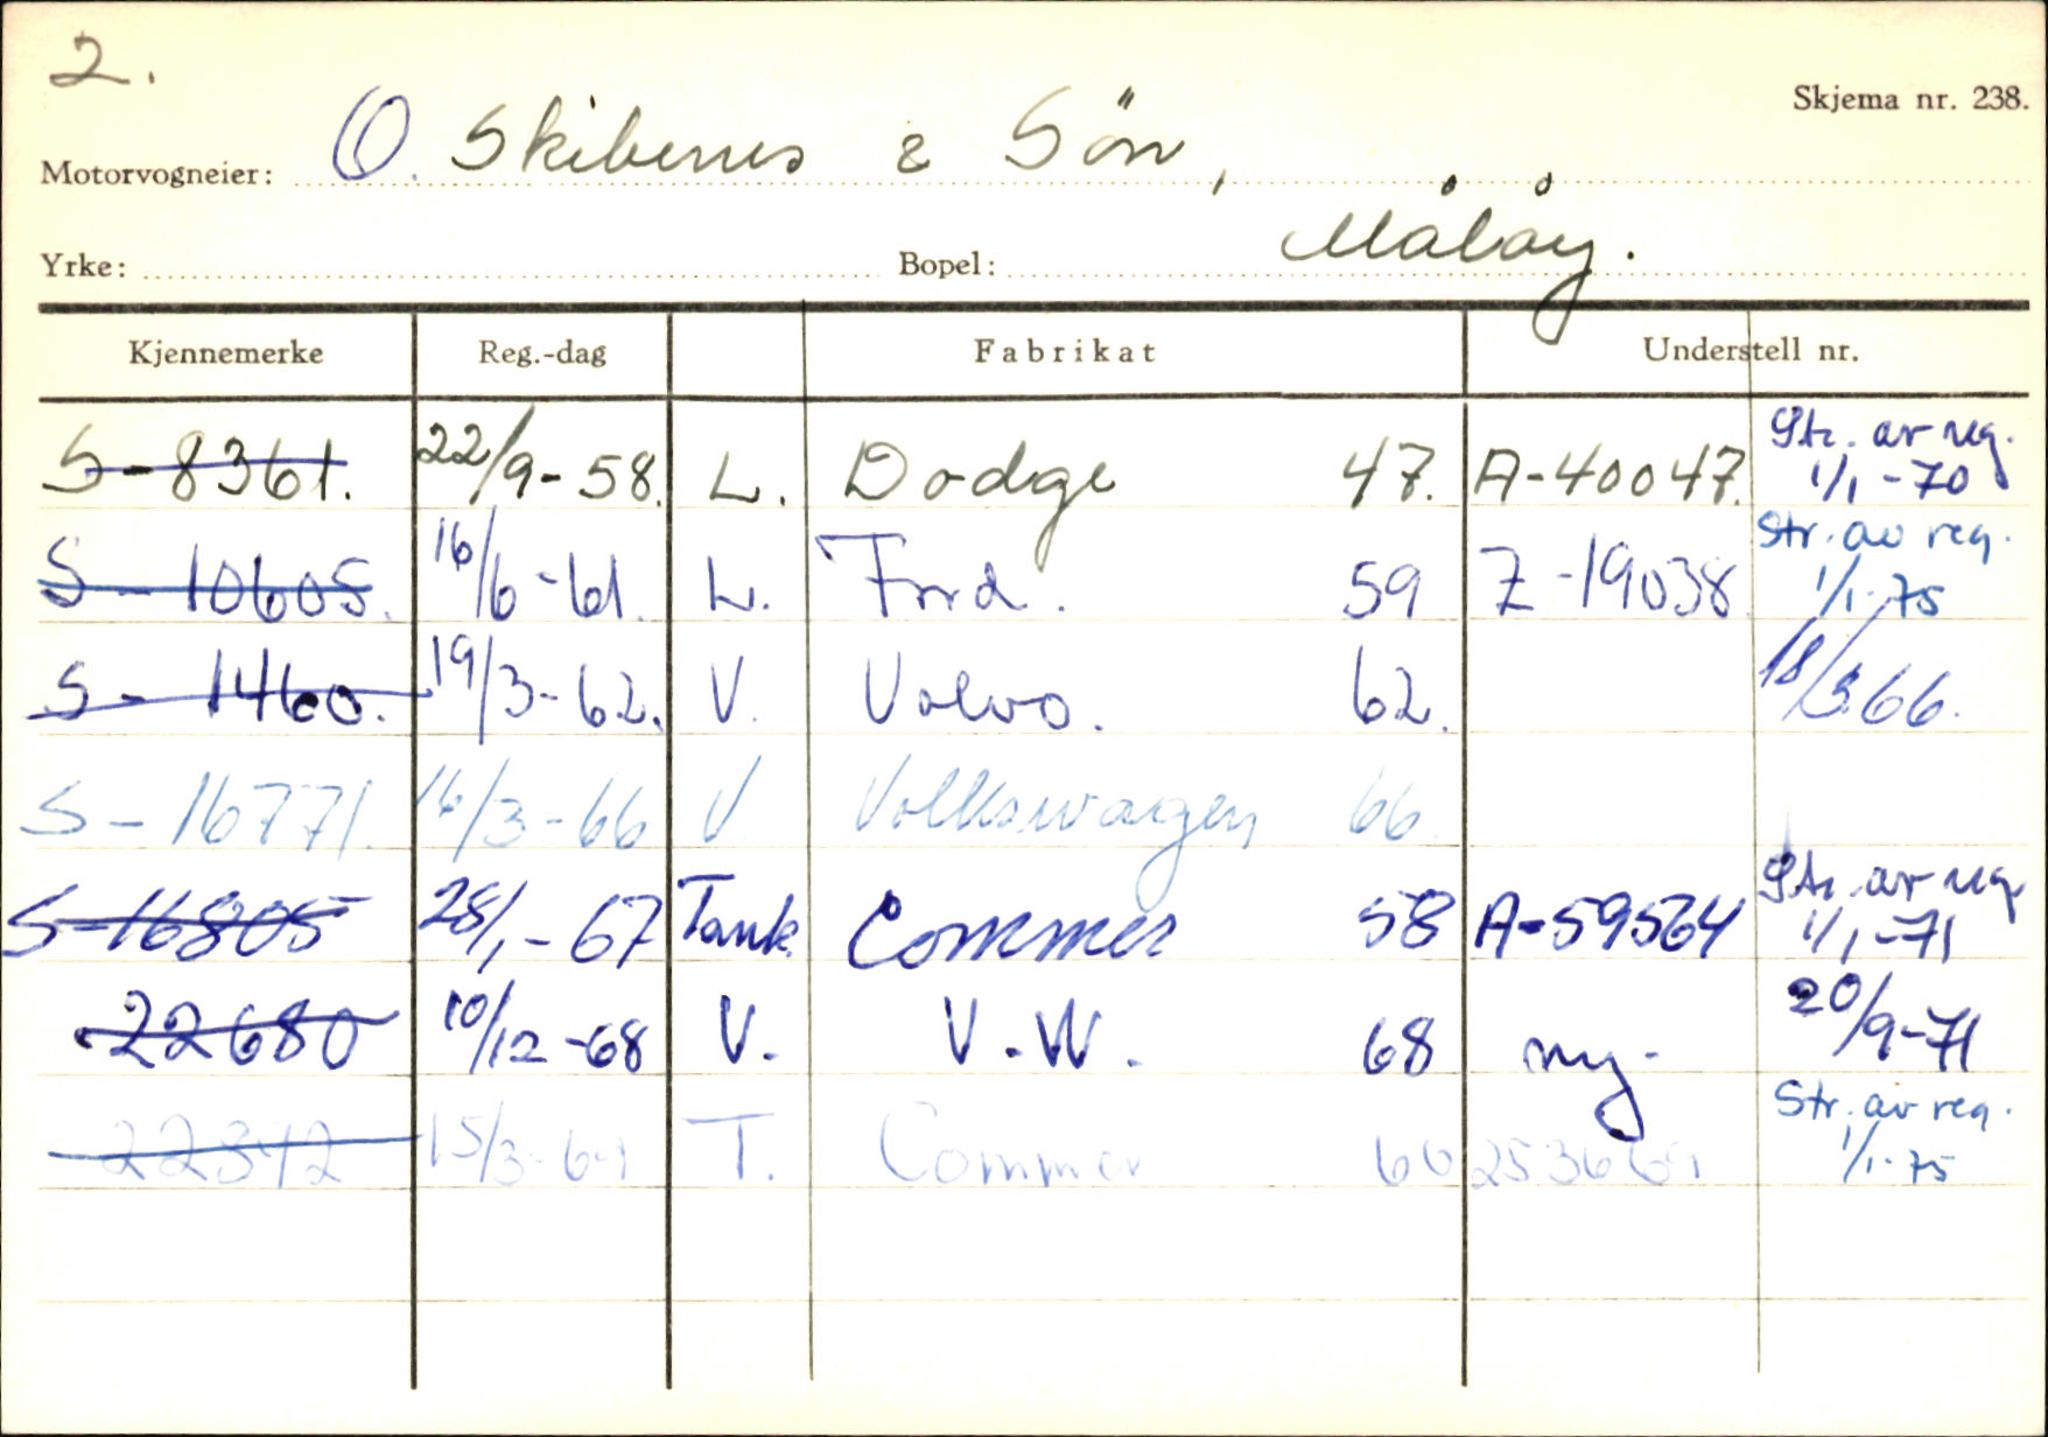 2.
Skjema nr. 238.
Motorvogneier: O. Skibenes & Sön,
Yrke: Bopel: Måløy.
Kjennemerke Reg.-dag Fabrikat Understell nr.
S-8361. 22/9-58. L. Dodge 47. A-40047. Str. av reg. 1/1-70
S-10605. 16/6-61. L. Ford. 59 Z-19038 Str. av reg. 1/1-75
S-1460. 19/3-62. V. Volvo. 62. 18/3.66.
S-16771. 16/3-66 V Volkswagen 66
S-16805 28/1-67 Tank Commer 58 A-59564 Str. av reg 1/1-71
22680 10/12-68 V. V.W. 68 ny- 20/9-71
22342 15/3-69 T. Commer 60 Str. av reg. 1/1-75